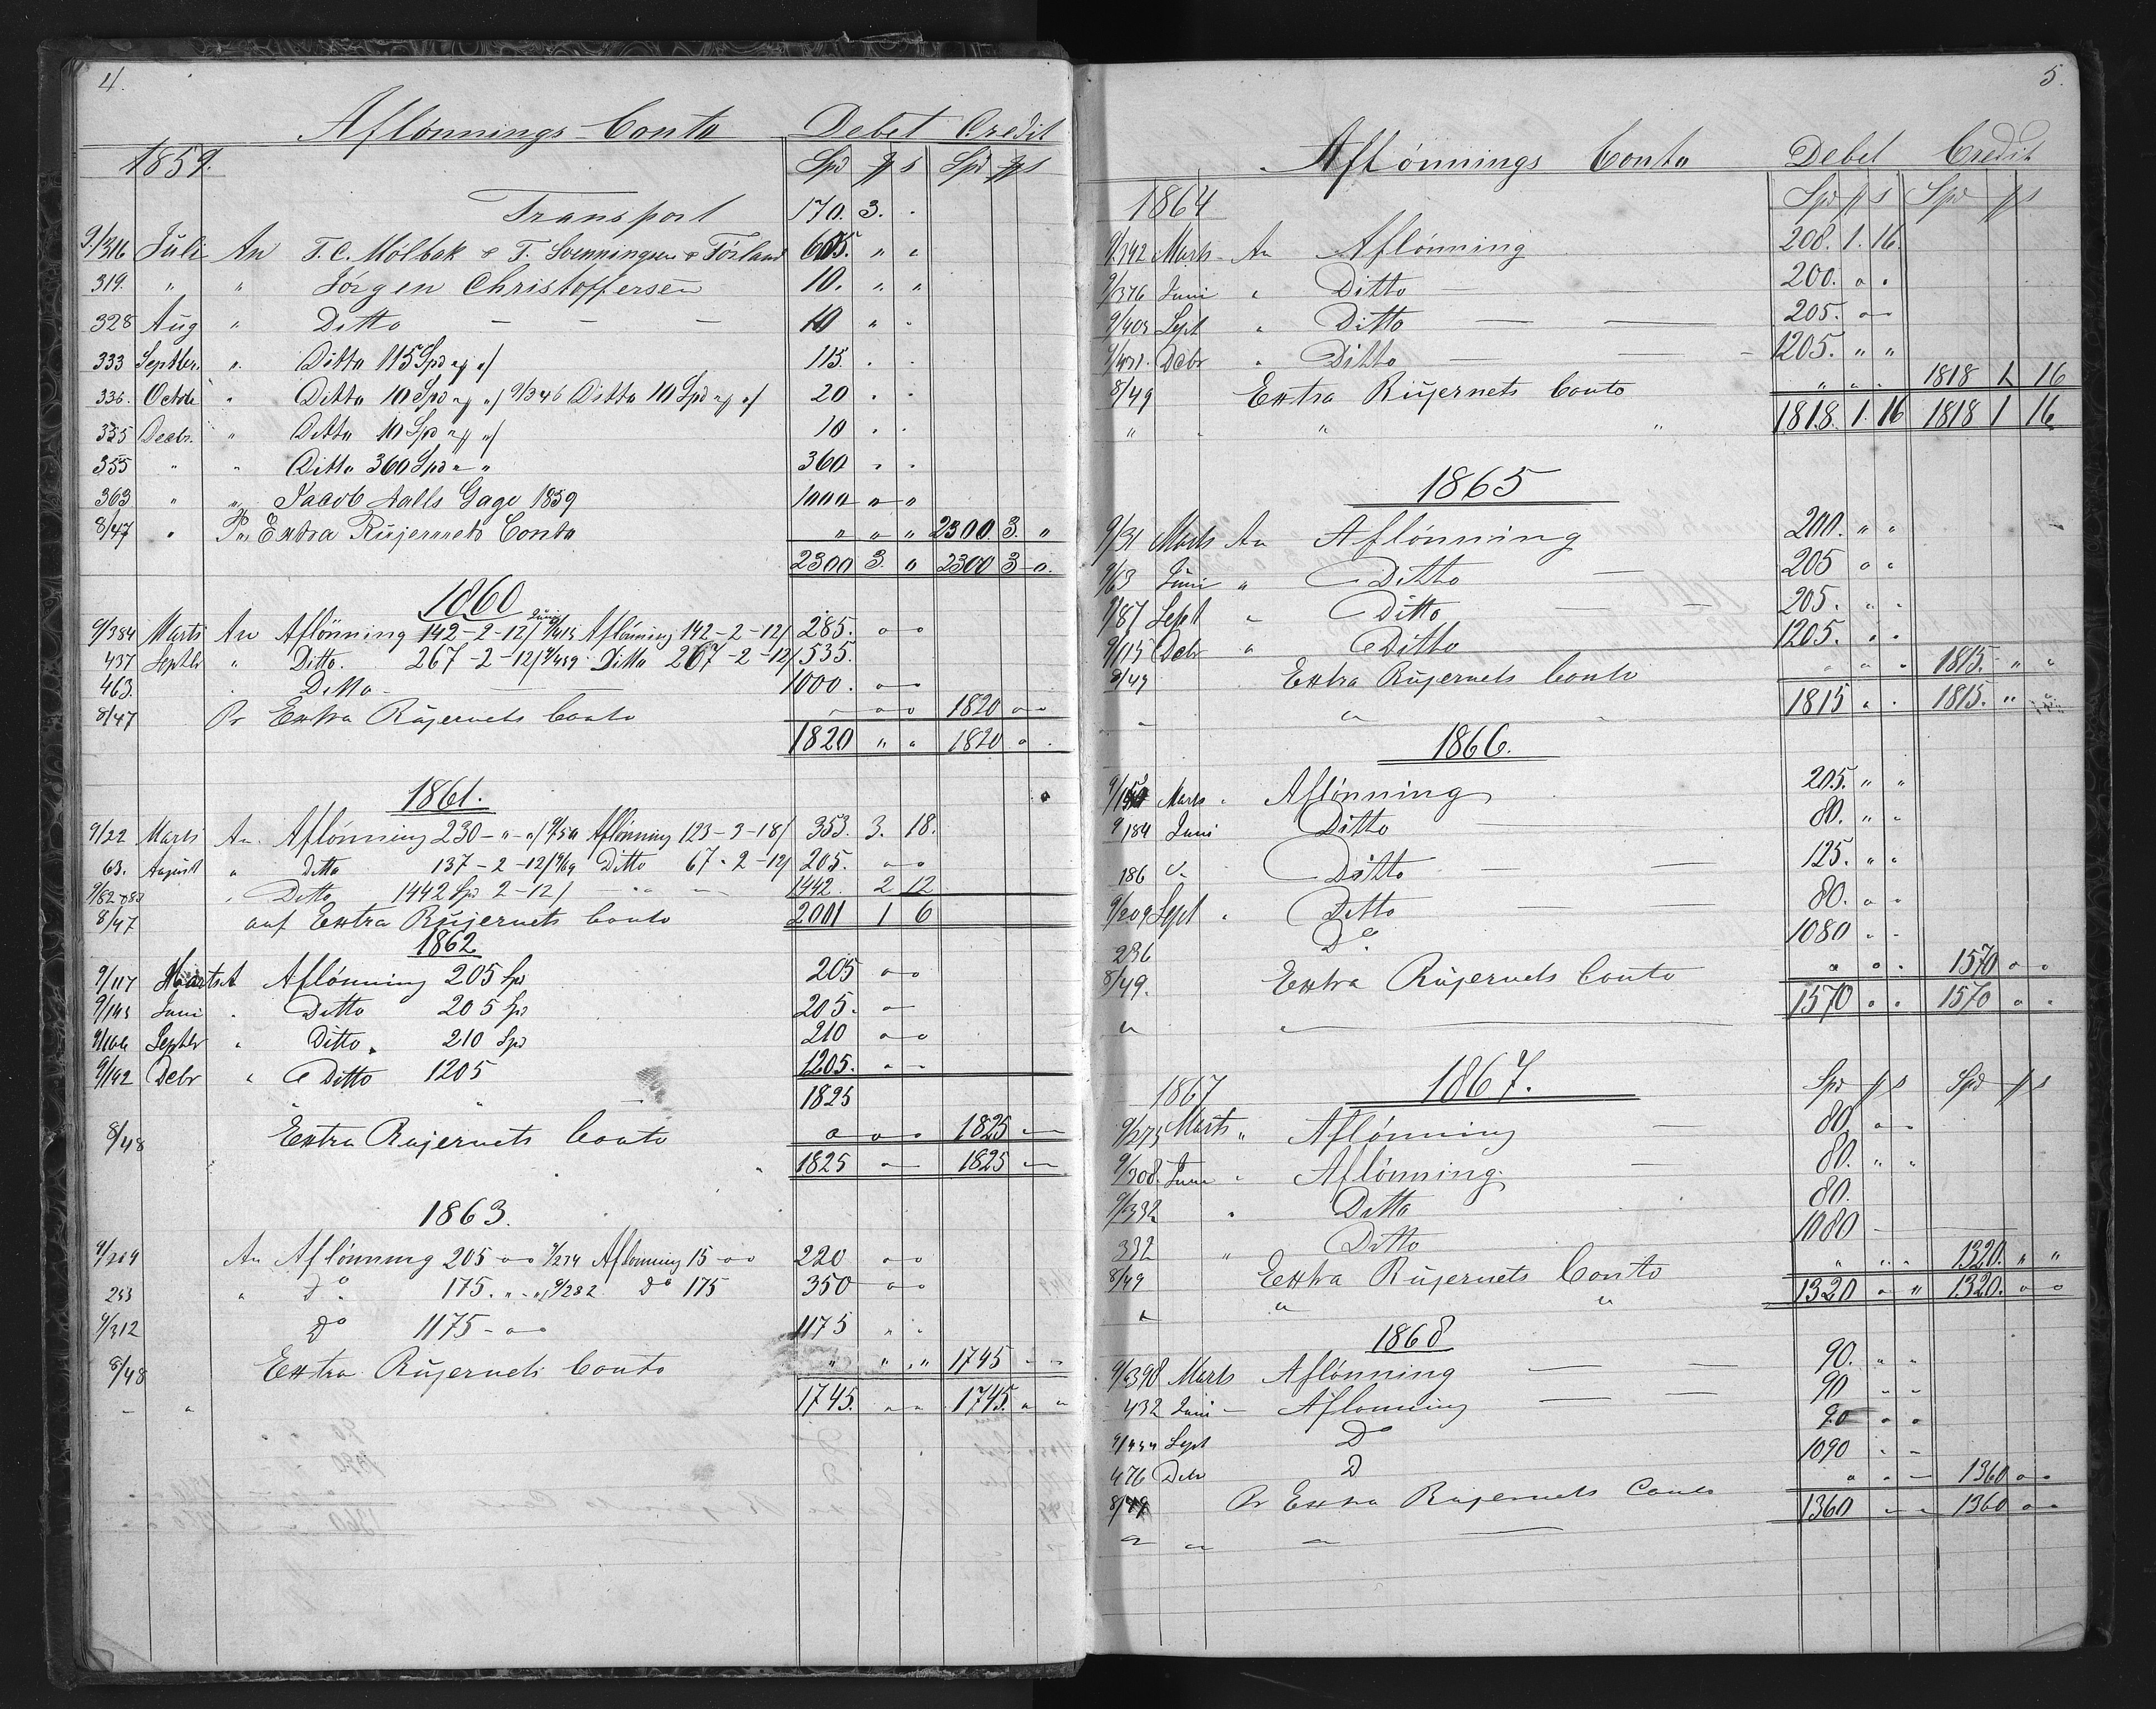 4.
Aflönnings-Conto Debet Credit
1859. Spd ß s Spd ß s
Transport 170. 3. "
9/316 Juli An T. C. Mölbak & T. Svenningsen & Törland 605. " "
319. " " Jörgen Christoffersen 10. " "
328 Aug " Ditto — — — 10 " "
333 Septbr. " Ditto 115 Spd " " 115. " "
336. Octobr " Ditto 10 Spd " " / 9/346 Ditto 10 Spd " " 20 " "
335 Decbr. " Ditto 10 Spd " " 10 " "
355 " " Ditto 360 Spd " " 360 " "
363 " " Jacob Aalls Gage 1859 1000 " "
8/47 " Pr Extra Rujernets Conto " " " 2300. 3. "
2300 3. " 2300 3 "
1860
9/384 Marts An Aflönning 142-2-12/ Juni 9/415 Aflönning 142-2-12/ 285. " "
437 Septbr " Ditto. 267-2-12/ 9/439 Ditto 267-2-12/ 535.
463. " Ditto — 1000. " "
8/47 Pr Extra Rujernets Conto " " " 1820 " "
1820 " " 1820 " "
1861.
9/22 Marts An. Aflönning 230-"-"/ 9/50 Aflönning 123-3-18/ 353. 3. 18.
63. August " Ditto 137-2-12/ 9/69 Ditto 67-2-12/ 205. " "
9/82 & 83 " Ditto 1442 Spd 2-12/ — " — 1442. 2 12
8/47 auf Extra Rujernets Conto 2001 1 6
1862
9/117 Marts A Aflönning 205 Spd 205 " "
9/143 Juni " Ditto 205 Spd 205. "
9/166 Septbr " Ditto. 210 Spd 210 " "
9/192 Debr " Ditto 1205 1205. " "
1825
8/48 Extra Rujernets Conto " " " 1825 "
1825 " 1825 "
1863.
9/209 An Aflönning 205 " " 9/234 Aflönning 15 " " 220 " "
253 " Do. 175. " " 9/282 Do 175 350 " "
9/312 Do 1175 - " " 1175 " "
8/48 Extra Rujernets Conto " " " 1745 " "
" " 1745. " " 1745. " "
5.
Aflönnings Conto Debet Credit
1864 Spd ß s Spd ß s
9/342 Marts - An Aflönning 208. 1. 16.
9/376 Juni " Ditto — 200. " "
9/403 Sept " Ditto — — 205. " "
9/431. Debr " Ditto — — 1205. " "
8/49 Extra Rujernets Conto " " " 1818 1 16
" " " " 1818. 1. 16 1818 1 16
1865
9/31 Marts An Aflönning 200. " "
9/63 Juni " Ditto — 205 " "
9/87 Sept " Ditto — — 205. " "
9/115 Debr " Ditto 1205. " "
8/49 Extra Rujernets Conto " " " 1815. " "
" " " 1815 " " 1815. " "
1866.
Marts " Aflönning 205. " "
9/184 Juni Ditto — 80. " "
186 " Ditto — 125. " "
9/209 Sept " Ditto — 80. " "
236 Do 1080 " "
8/49. Extra Rujernets Conto " " " 1570 " "
" " 1570 " " 1570 " "
1867 1867. Spd ß s Spd ß s
9/275 Marts " Aflönning — 80. " "
9/308. Juni " Aflönning. — 80. " "
9/332 " Ditto 80.
332 " Ditto 1080 —
8/49 Extra Rujernets Conto " " " 1320. " "
" " " 1320 " " 1320. " "
1868
9/398 Marts Aflönning — — 90. " "
432 Juni - Aflonning — — 90 " "
Sept Do 90 " "
476 Debr D 1090 " "
8/49 Pr Extra Rujernets Conto " " " 1360 " "
" " " 1360 " " 1360 " "